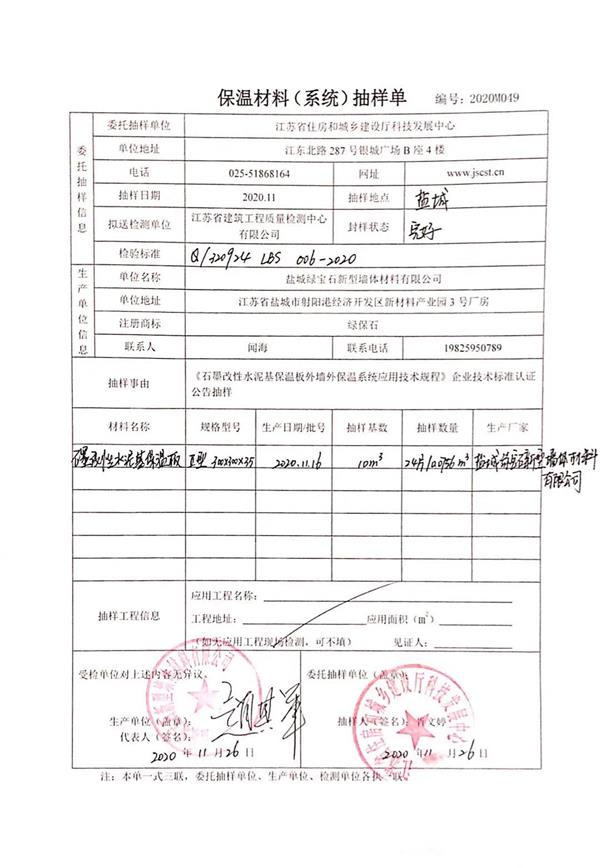 保温材料（系统）抽样单 编号：2020M049
委托抽样信息
委托抽样单位 江苏省住房和城乡建设厅科技发展中心
单位地址 江东北路 287 号银城广场 B 座 4 楼
电话 025-51868164 网址 www.jscst.cn
抽样日期 2020.11 抽样地点 盐城
拟送检测单位 江苏省建筑工程质量检测中心有限公司 封样状态 完好
检验标准 Q/320924 LBS 006-2020
生产单位信息
单位名称 盐城绿宝石新型墙体材料有限公司
单位地址 江苏省盐城市射阳港经济开发区新材料产业园 3 号厂房
注册商标 绿保石
联系人 闻海 联系电话 19825950789
抽样事由 《石墨改性水泥基保温板外墙外保温系统应用技术规程》企业技术标准认证
公告抽样
材料名称 规格型号 生产日期/批号 抽样基数 抽样数量 生产厂家
石墨改性水泥基保温板 Ⅱ型 300x300x35 2020.11.16 10m³ 24片/0.0756m³ 盐城绿宝石新型墙体材料
有限公司
抽样工程信息
应用工程名称：
工程地址： 应用面积（m²）
（如无应用工程现场检测，可不填） 见证人：
受检单位对上述内容无异议。 委托抽样单位（盖章）：
生产单位（盖章）： 抽样人（签名）：肖文婷
代表人（签名）：
2020 年 11 月 26 日 2020 年 11 月 26 日
注：本单一式三联，委托抽样单位、生产单位、检测单位各执一联。